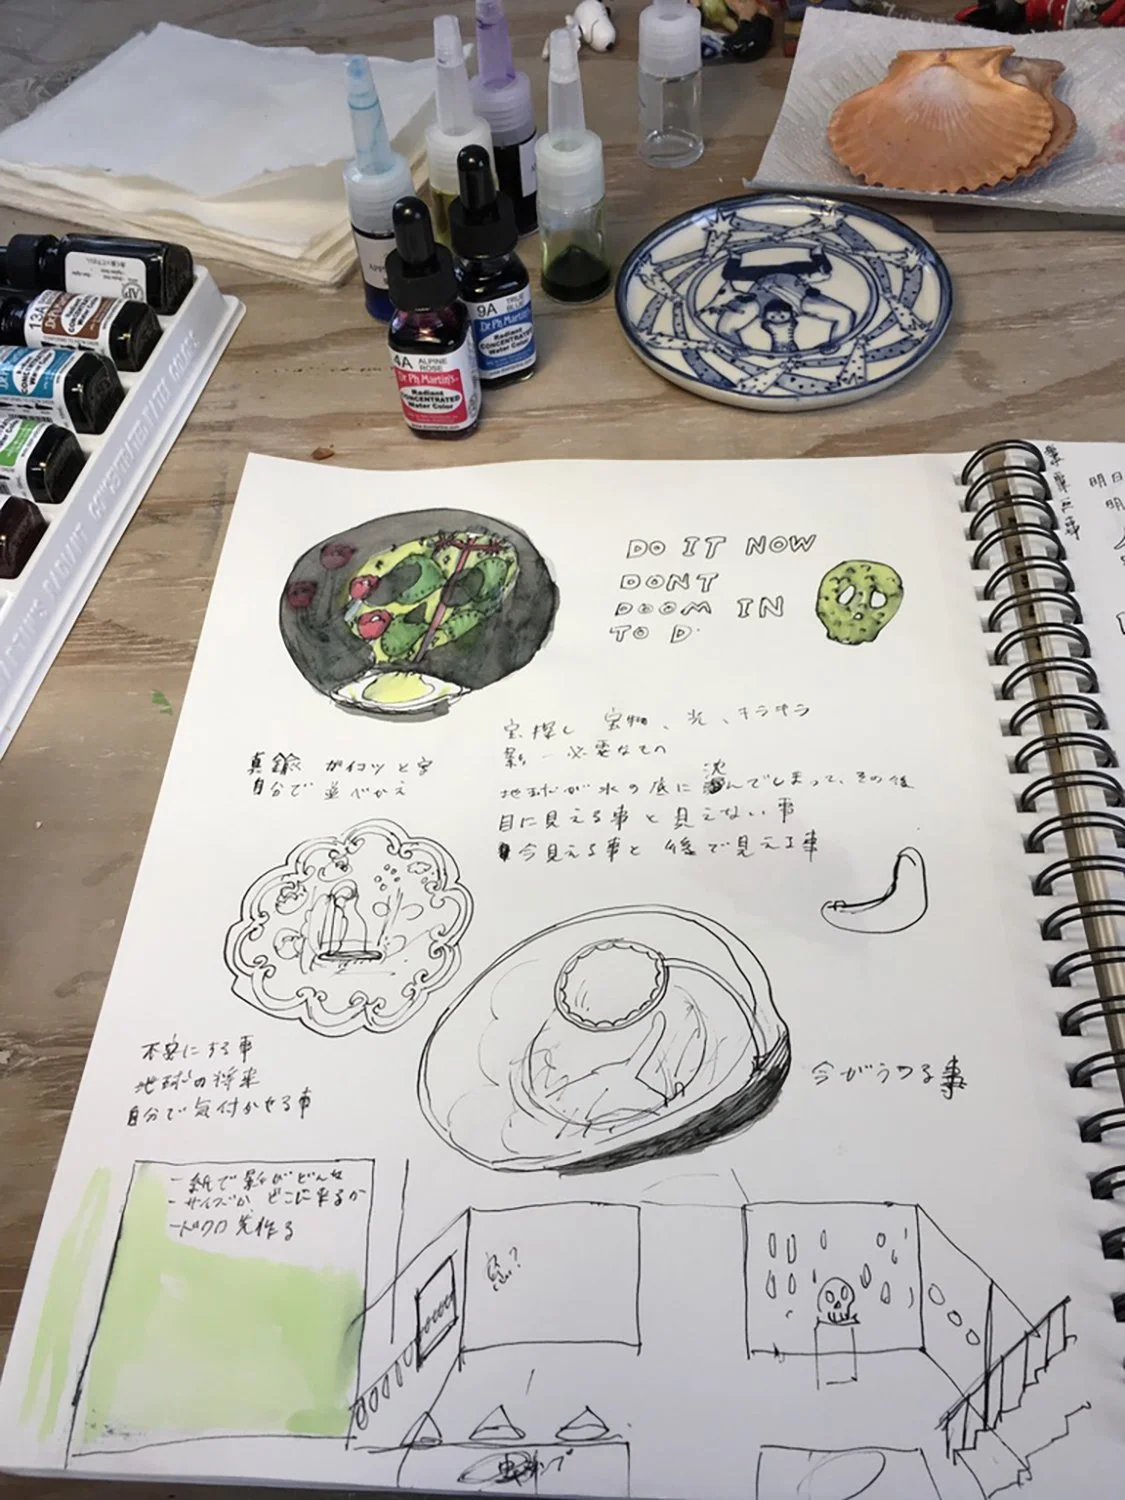 13A
Dr. Ph. Martin's
4A ALPINE ROSE
Dr. Ph. Martin's
Radiant
CONCENTRATED
Water Color
9A TRUE BLUE
Dr. Ph. Martin's
Radiant
CONCENTRATED
Water Color
DO IT NOW
DONT
DOOM IN
TO D
宝探し 宝物、光、キラキラ
影 - 必要なもの
地球が水の底に沈んでしまって、その後
目に見える事と見えない事
今見える事と後で見える事
真鍮 ガイコツと宝
自分で並べかえ
不安にする事
地球の将来
自分で気付かせる事
今がうつる事
- 紙で影がどんな
- サイズか どこに来るか
- ドクロ 先作る
窓?
明日